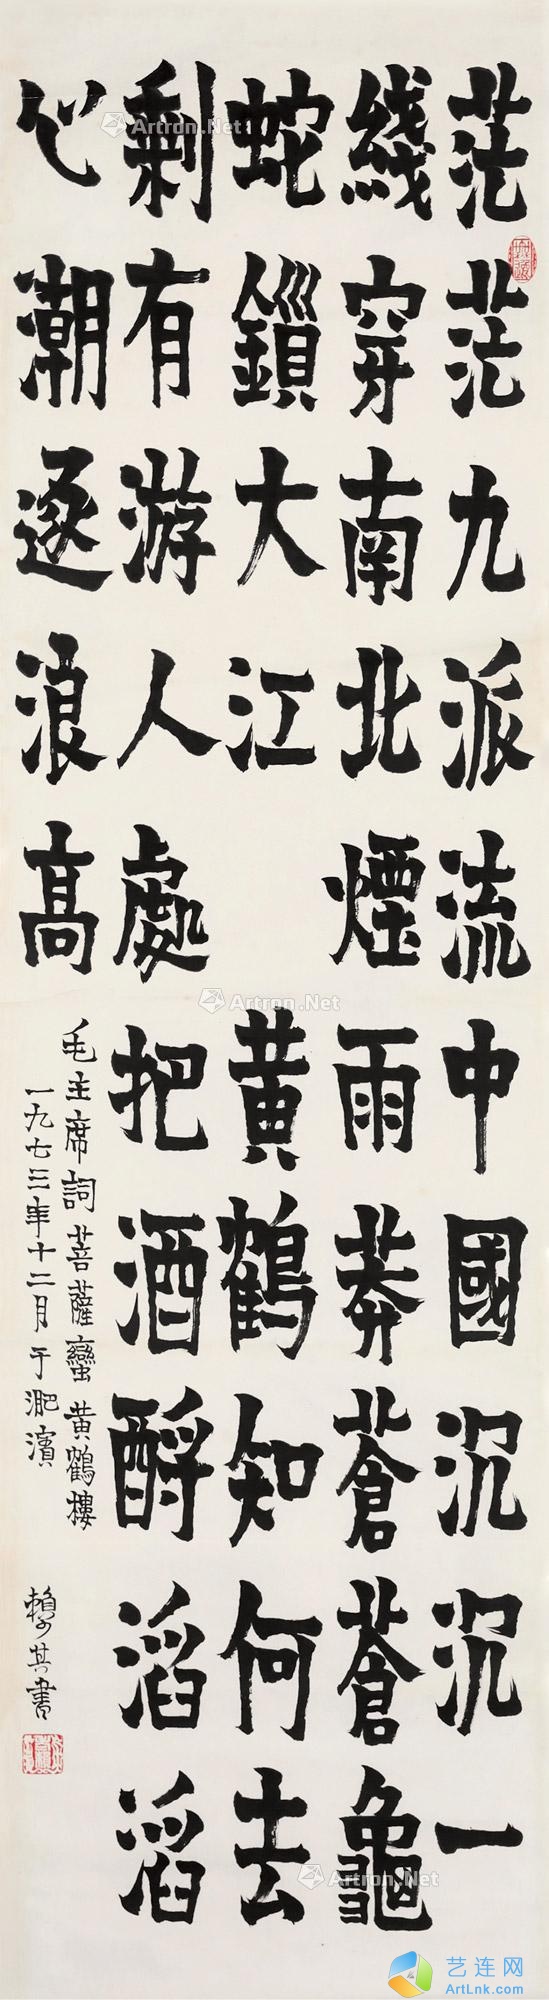 茫茫九派流中國沉沉一
綫穿南北煙雨莽蒼蒼龜
蛇鎖大江 黄鶴知何去
剩有游人處把酒酹滔滔
心潮逐浪高
毛主席詞菩薩蠻黄鶴樓
一九七三年十二月于淝濱
賴少其書
Artron.Net
Artron.Net
Artron.Net
Artron.Net
Artron.Net
Artron.Net
艺连网
ArtLnk.com